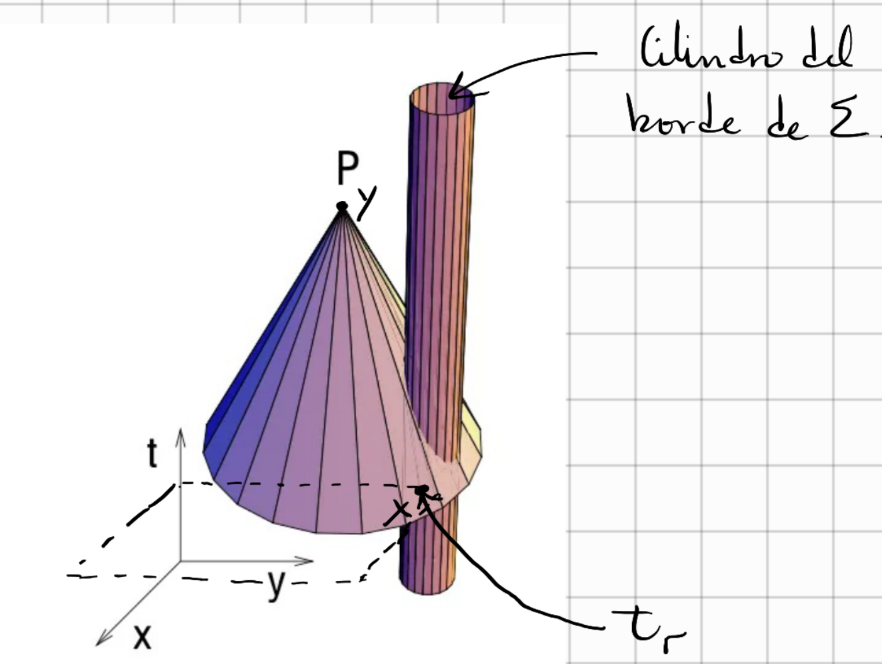 Cilindro del
borde de Σ.
P
y
t
x
y
x
t_r